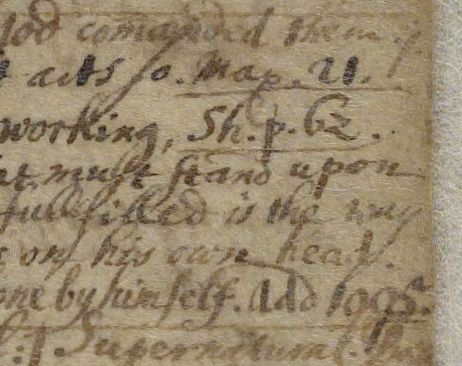 God comanded them
acts so. Map. 21.
working, Sh. p. 62.
must stand upon
fullfilled is the way
on his own head.
one by himself. Add
Supernatural.